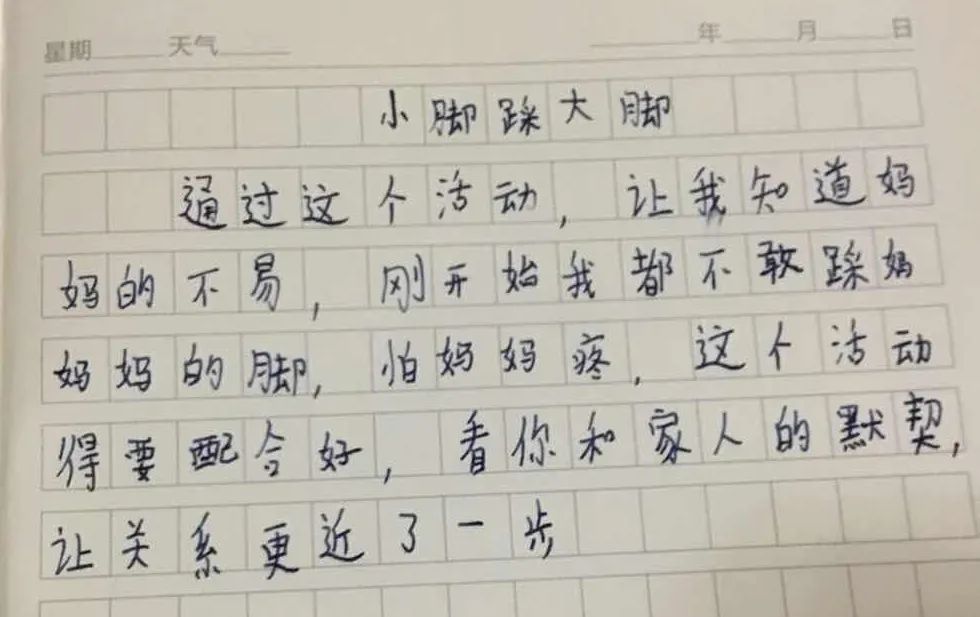 星期 天气 年 月 日
小脚踩大脚
通过这个活动，让我知道妈
妈的不易，刚开始我都不敢踩妈
妈妈的脚，怕妈妈疼，这个活动
得要配合好，看你和家人的默契，
让关系更近了一步